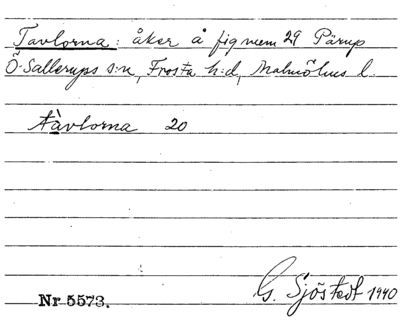 Tavlorna: åker å fignum 29 Pärup
Ö. Sallerups s:n, Frosta h:d, Malmöhus l.
tàvlorna 20
G. Sjöstedt 1940
Nr 5573.